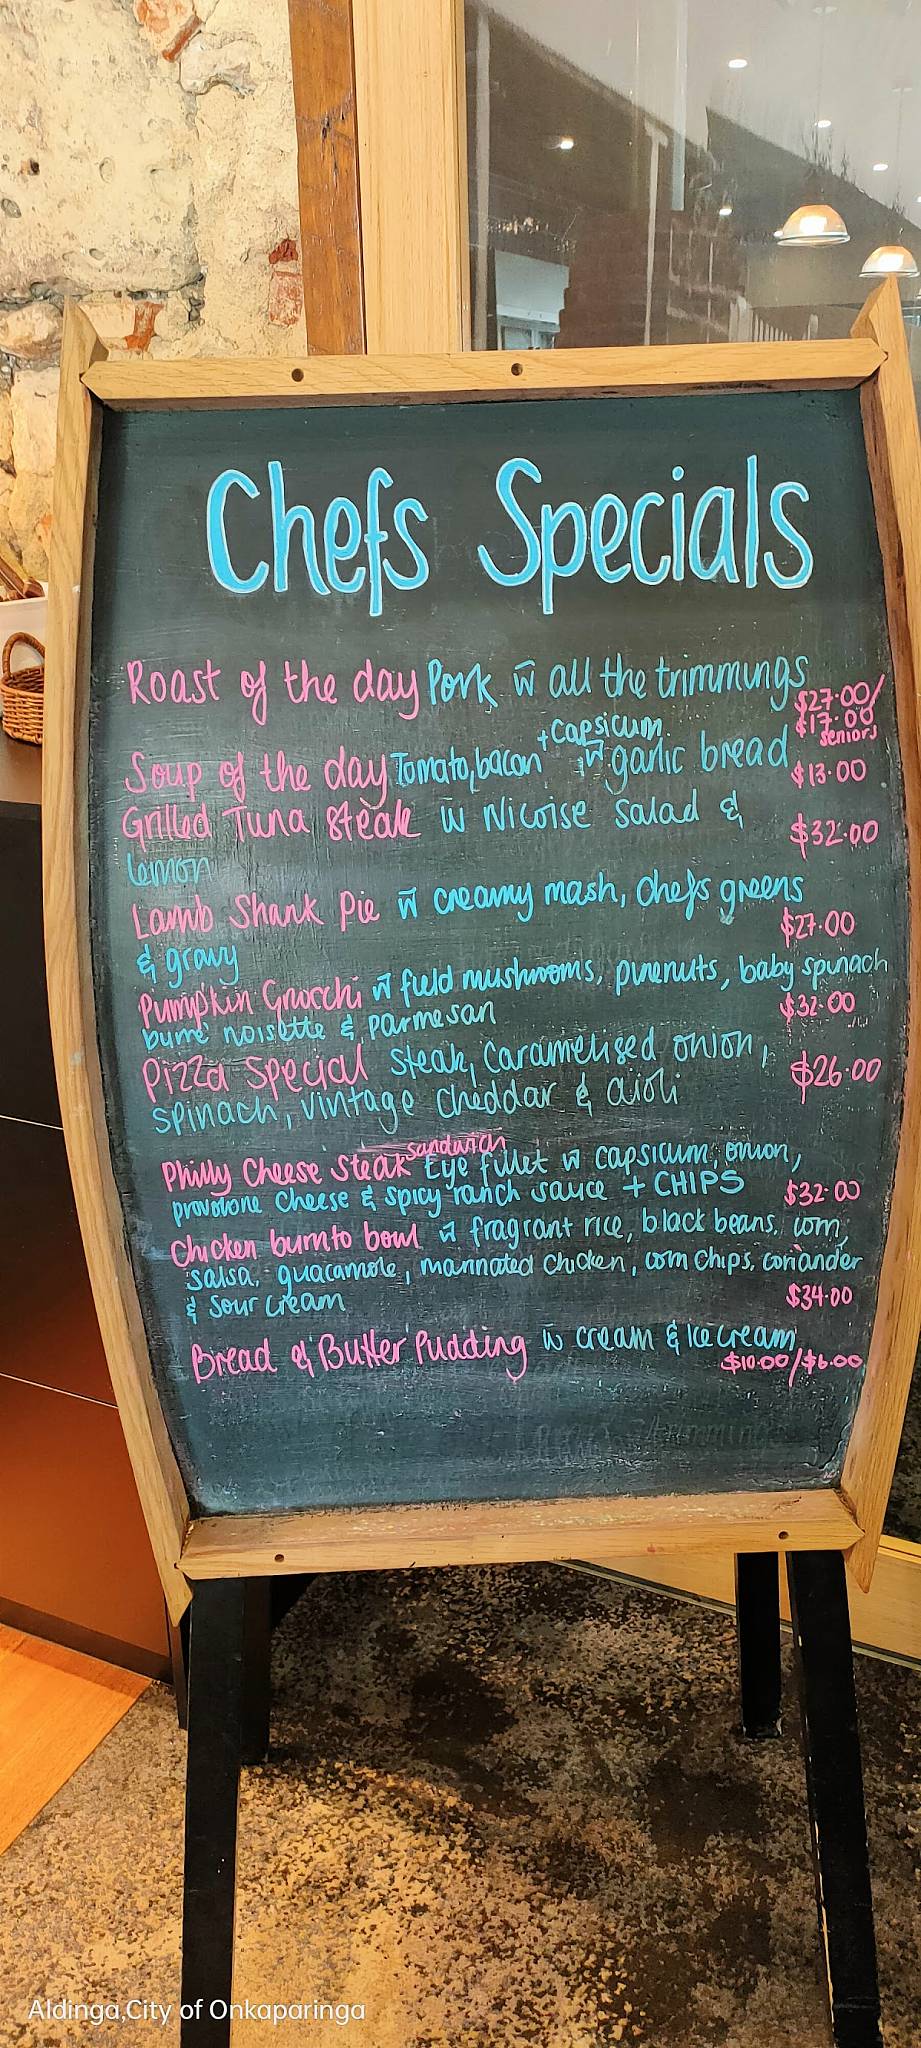 Chefs Specials
Roast of the day Pork w̄ all the trimmings
$27.00/
$17.00
seniors
+ capsicum
Soup of the day Tomato, bacon w̄ garlic bread
$13.00
Grilled Tuna Steak w̄ Nicoise Salad &
$32.00
lemon
Lamb Shank Pie w̄ creamy mash, chefs greens
$27.00
& gravy
Pumpkin Gnocchi w̄ field mushrooms, pinenuts, baby spinach
$32.00
burre noisette & parmesan
Pizza Special Steak, Caramelised onion,
$26.00
spinach, vintage cheddar & aioli
sandwich
Philly Cheese Steak Eye fillet w̄ capsicum, onion,
provolone cheese & spicy ranch sauce + CHIPS
$32.00
Chicken burrito bowl w̄ fragrant rice, black beans, corn,
salsa, guacamole, marinated chicken, corn chips, coriander
& sour cream
$34.00
Bread & Butter Pudding w̄ cream & Ice cream
$10.00/$6.00
Aldinga,City of Onkaparinga